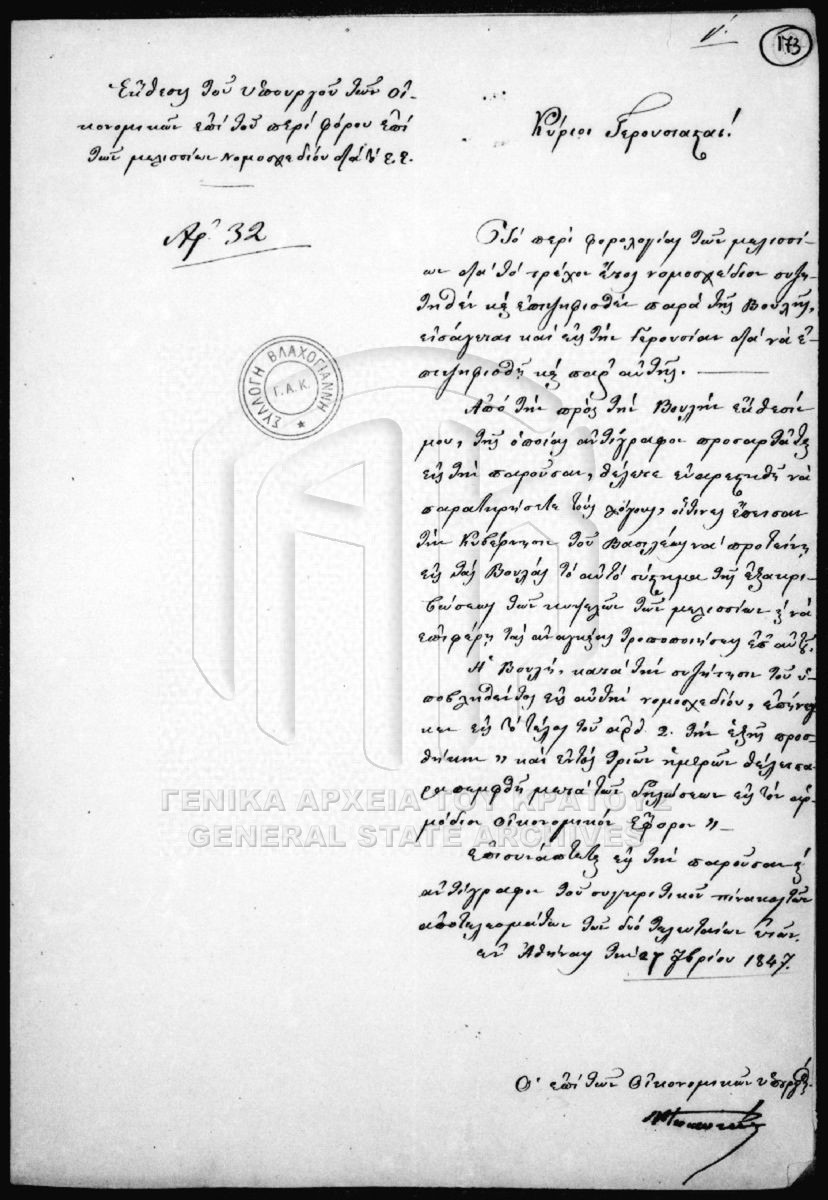 173
Ἔκθεσις τοῦ Ὑπουργοῦ τῶν Οἰ-
κονομικῶν ἐπὶ τοῦ περὶ φόρου ἐπὶ
τῶν μελισσίων Νομοσχεδίου διὰ τὸ
Ἀρ. 32
Κύριοι Γερουσιασταί!
Τὸ περὶ φορολογίας τῶν μελισσί-
ων διὰ τὸ τρέχον ἔτος νομοσχέδιον συζη-
τηθὲν καὶ ἐπιψηφισθὲν παρὰ τῆς Βουλῆς,
εἰσάγεται καὶ εἰς τὴν Γερουσίαν διὰ νὰ ἐ-
πιψηφισθῇ καὶ παρ' αὐτῆς.
Ἀπὸ τὴν πρὸς τὴν Βουλὴν ἔκθεσίν
μου, τῆς ὁποίας ἀντίγραφον προσαρτᾶται
εἰς τὴν παροῦσαν, θέλετε εὐαρεστηθῆ νὰ
παρατηρήσετε τοὺς λόγους, οἵτινες ἔπεισαν
τὴν Κυβέρνησιν τοῦ Βασιλέως νὰ προτείνῃ
εἰς τὰς Βουλὰς τὸ αὐτὸ σύστημα τῆς ἐξακρι-
βώσεως τῶν κυψελῶν τῶν μελισσίων καὶ νὰ
ἐπιφέρῃ τὰς ἀναγκαίας τροποποιήσεις ἐπ' αὐτοῦ.
Ἡ Βουλή, κατὰ τὴν συζήτησιν τοῦ ὑ-
ποβληθέντος εἰς αὐτὴν νομοσχεδίου, ἐπήνεγ
κεν εἰς τὸ τέλος τοῦ ἄρθ. 2. τὴν ἑξῆς προσ-
θήκην " καὶ ἐντὸς τριῶν ἡμερῶν θέλει πα
ραπεμφθῆ μετὰ τῶν δηλώσεων εἰς τὸν ἁρ-
μόδιον Οἰκονομικὸν Ἔφορον "
Ἐπισυνάπτεται εἰς τὴν παροῦσαν καὶ
ἀντίγραφον τοῦ συγκριτικοῦ πίνακος τῶν
ἀποτελεσμάτων τῶν δύο τελευταίων ἐτῶν.
ἐν Ἀθήναις τὴν 27 7βρίου 1847.
Ὁ ἐπὶ τῶν Οἰκονομικῶν Ὑπουργὸς
ΣΥΛΛΟΓΗ ΒΛΑΧΟΓΙΑΝΝΗ
Γ.Α.Κ.
ΓΕΝΙΚΑ ΑΡΧΕΙΑ ΤΟΥ ΚΡΑΤΟΥΣ
GENERAL STATE ARCHIVES